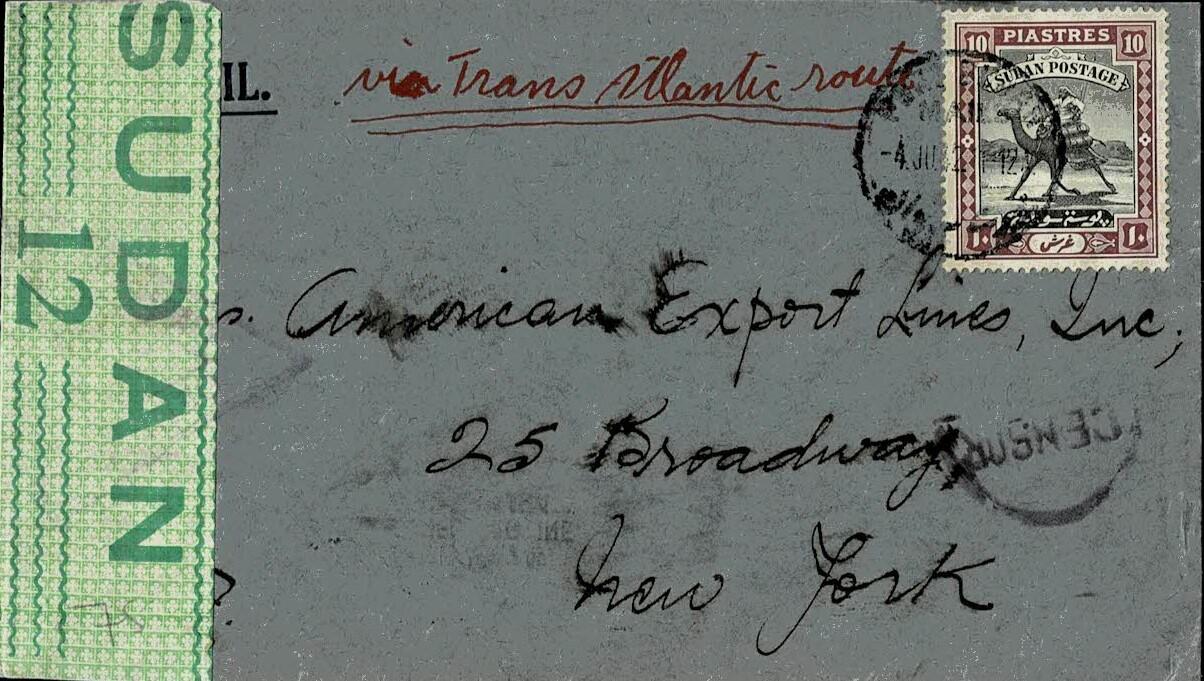 SUDAN
12
IL. via Trans Atlantic route
10 PIASTRES 10
SUDAN POSTAGE
١٠ غرش ١٠
s. American Export Lines, Inc;
25 Broadway
New York
75